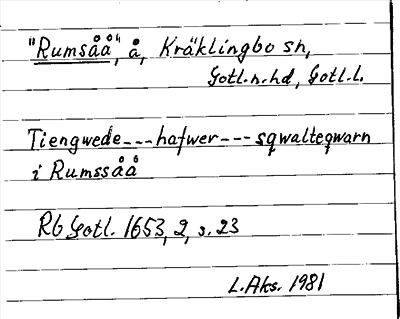 "Rumsåå", å, Kräklingbo sn,
Gotl.n.hd, Gotl.l.
Tiengwede---hafwer---sqwalteqwarn
i Rumssåå
Rb Gotl. 1653, 2, s. 23
L.Aks. 1981